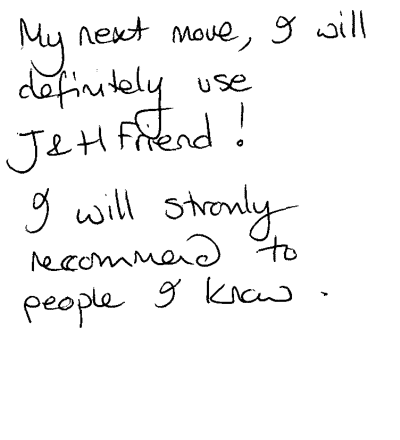 My next move, I will
definitely use
J&H Friend!
I will stronly
recommend to
people I know.